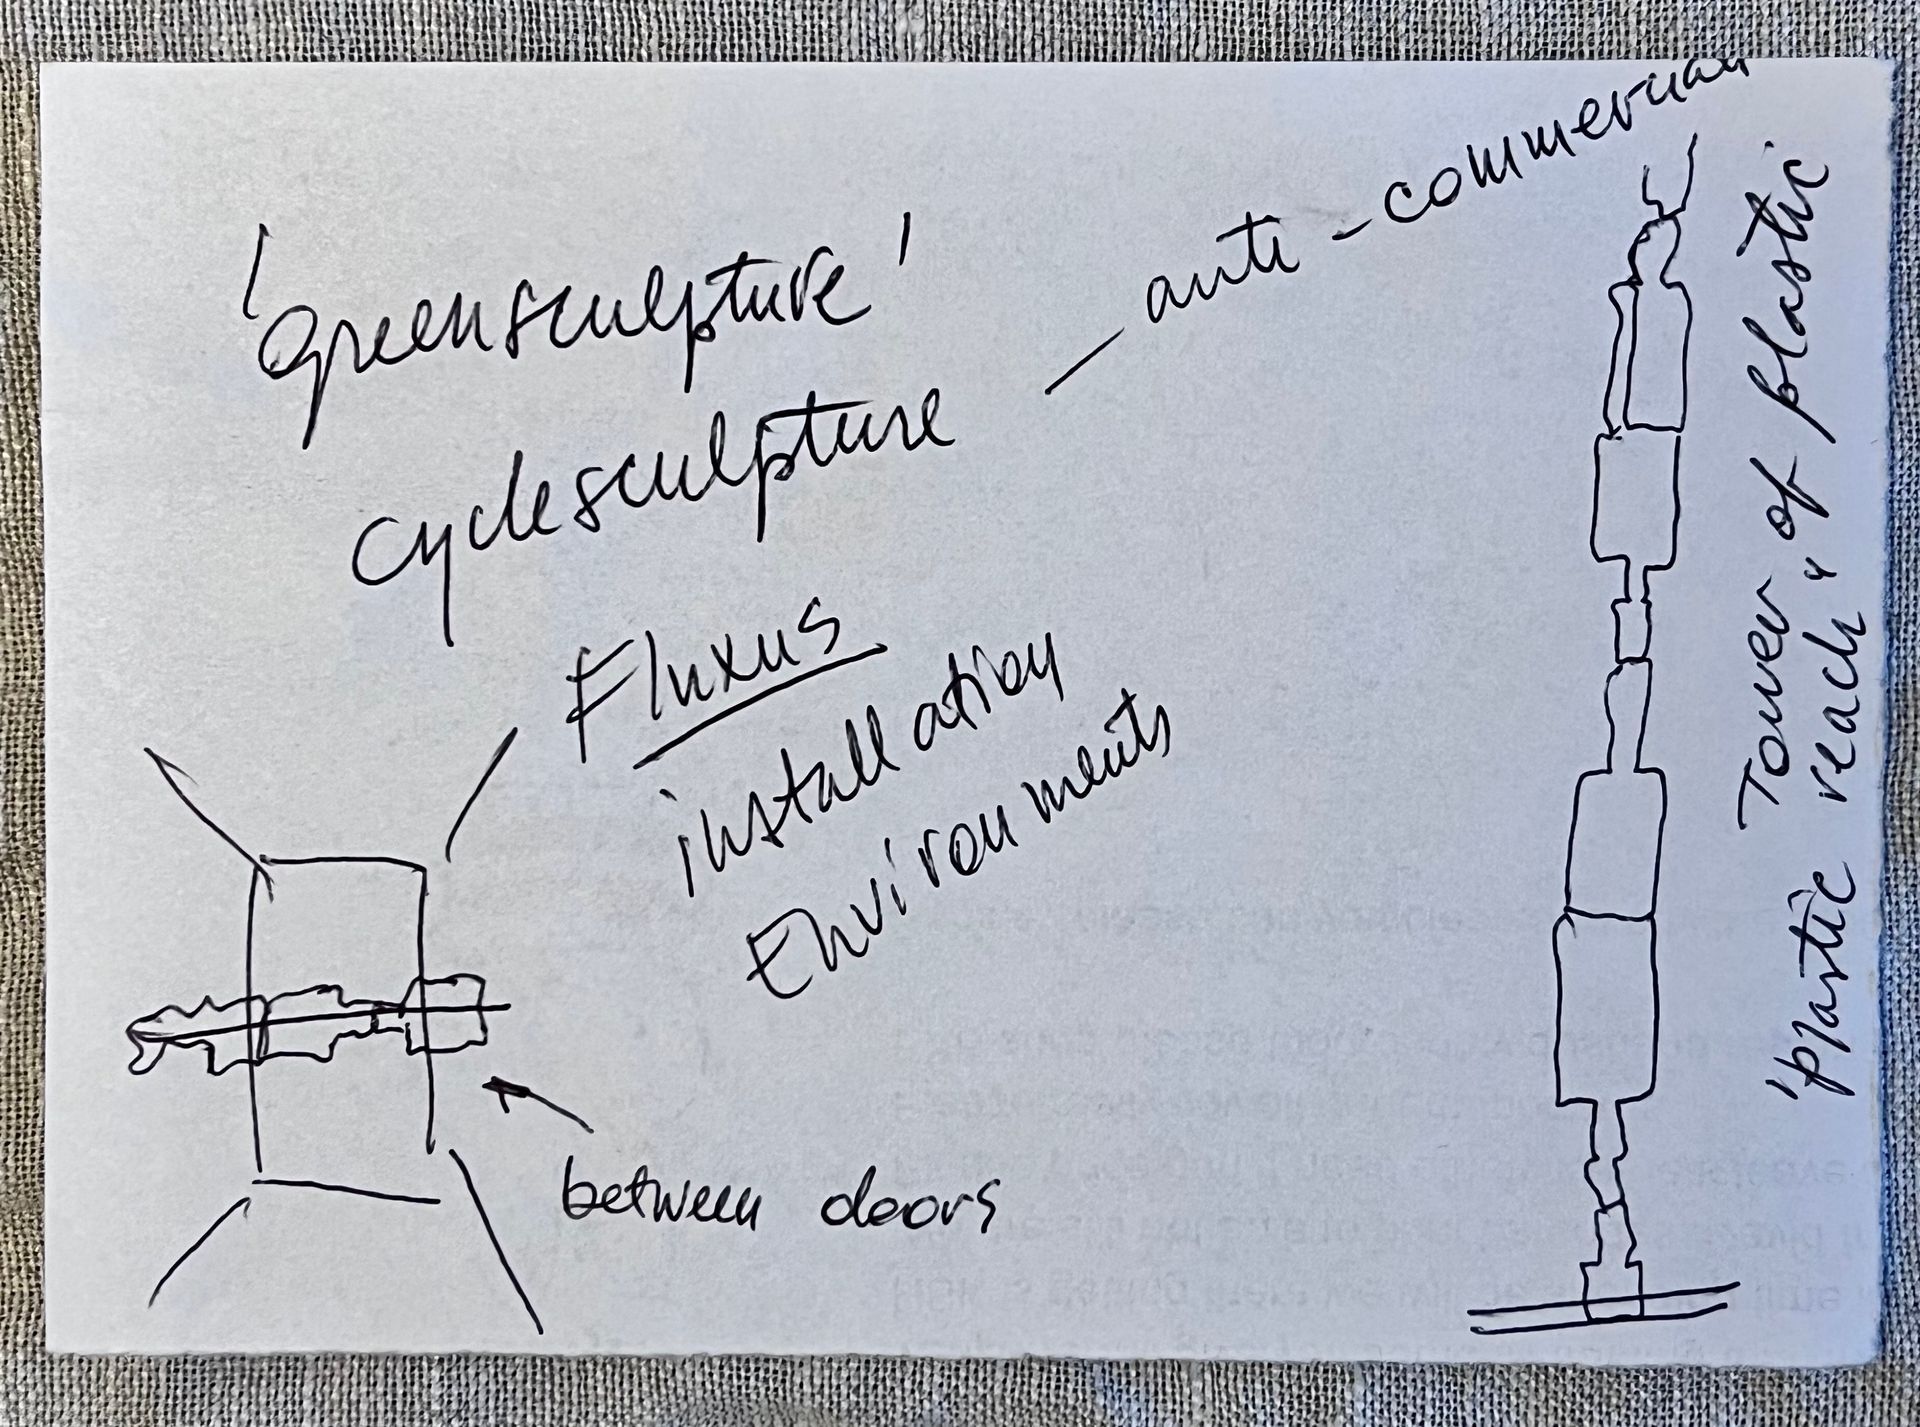 'greensculpture'
cyclesculpture — anti-commercial
Fluxus
installation
Environments
between doors
Tower of plastic
"plastic reach"